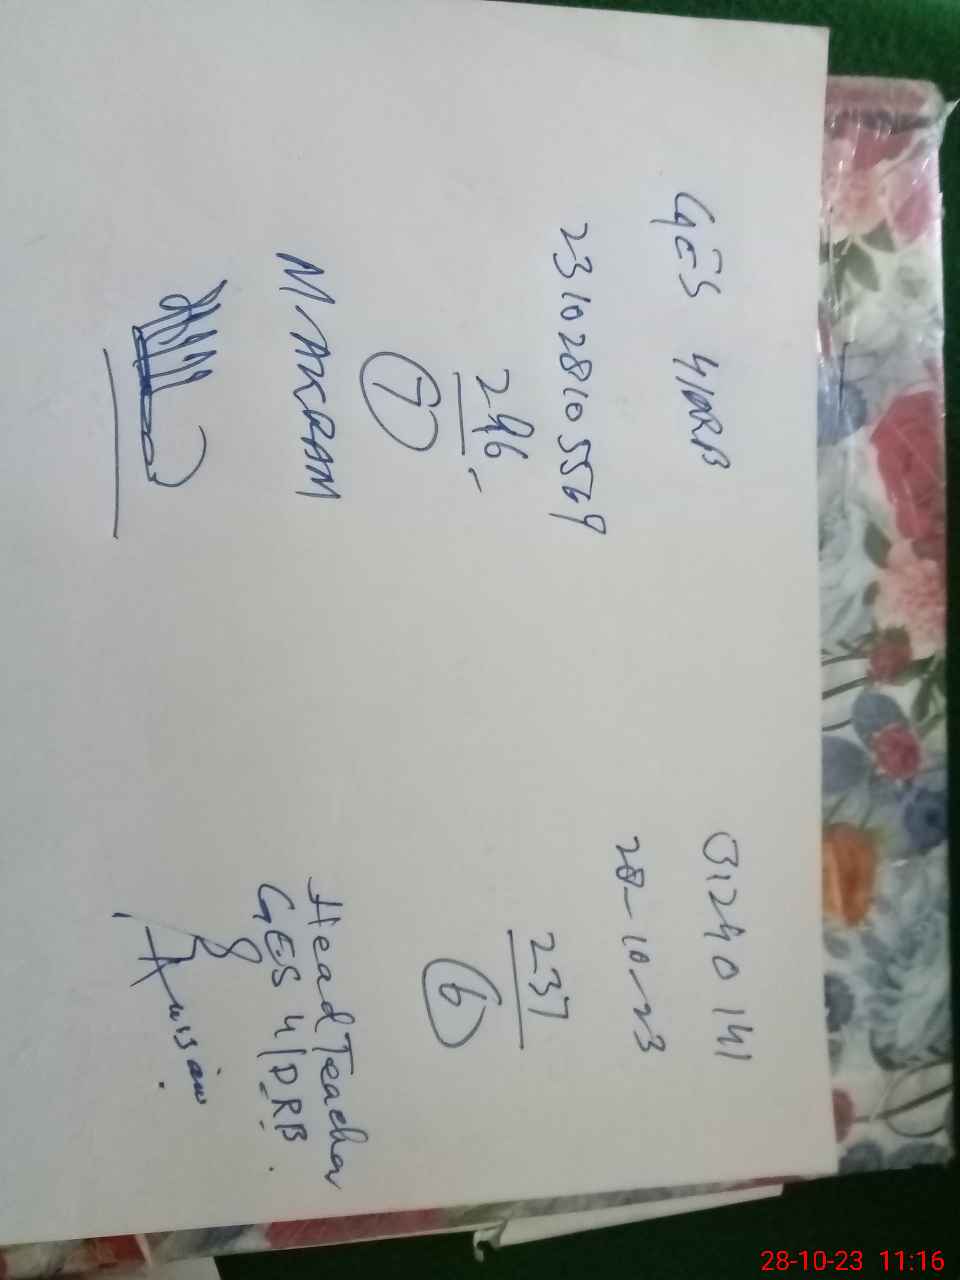 GES 4/DRB
31240141
231028105569
28-10-23
296
7
237
6
M/AKRAM
Head Teacher
GES 4/DRB
28-10-23 11:16